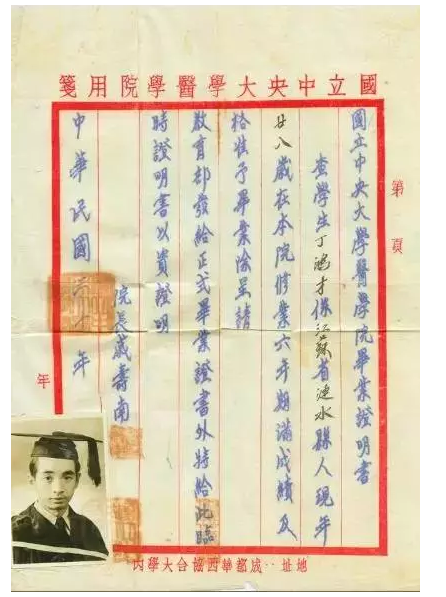 國立中央大學醫學院用箋
第 頁
國立中央大學醫學院畢業證明書
查學生丁鴻才係江蘇省漣水縣人現年
廿八歲在本院修業六年期滿成績及
格准予畢業除呈請
教育部發給正式畢業證書外特給此臨
時證明書以資證明
院長戚壽南
中華民國 年
年
地址：成都華西協合大學內